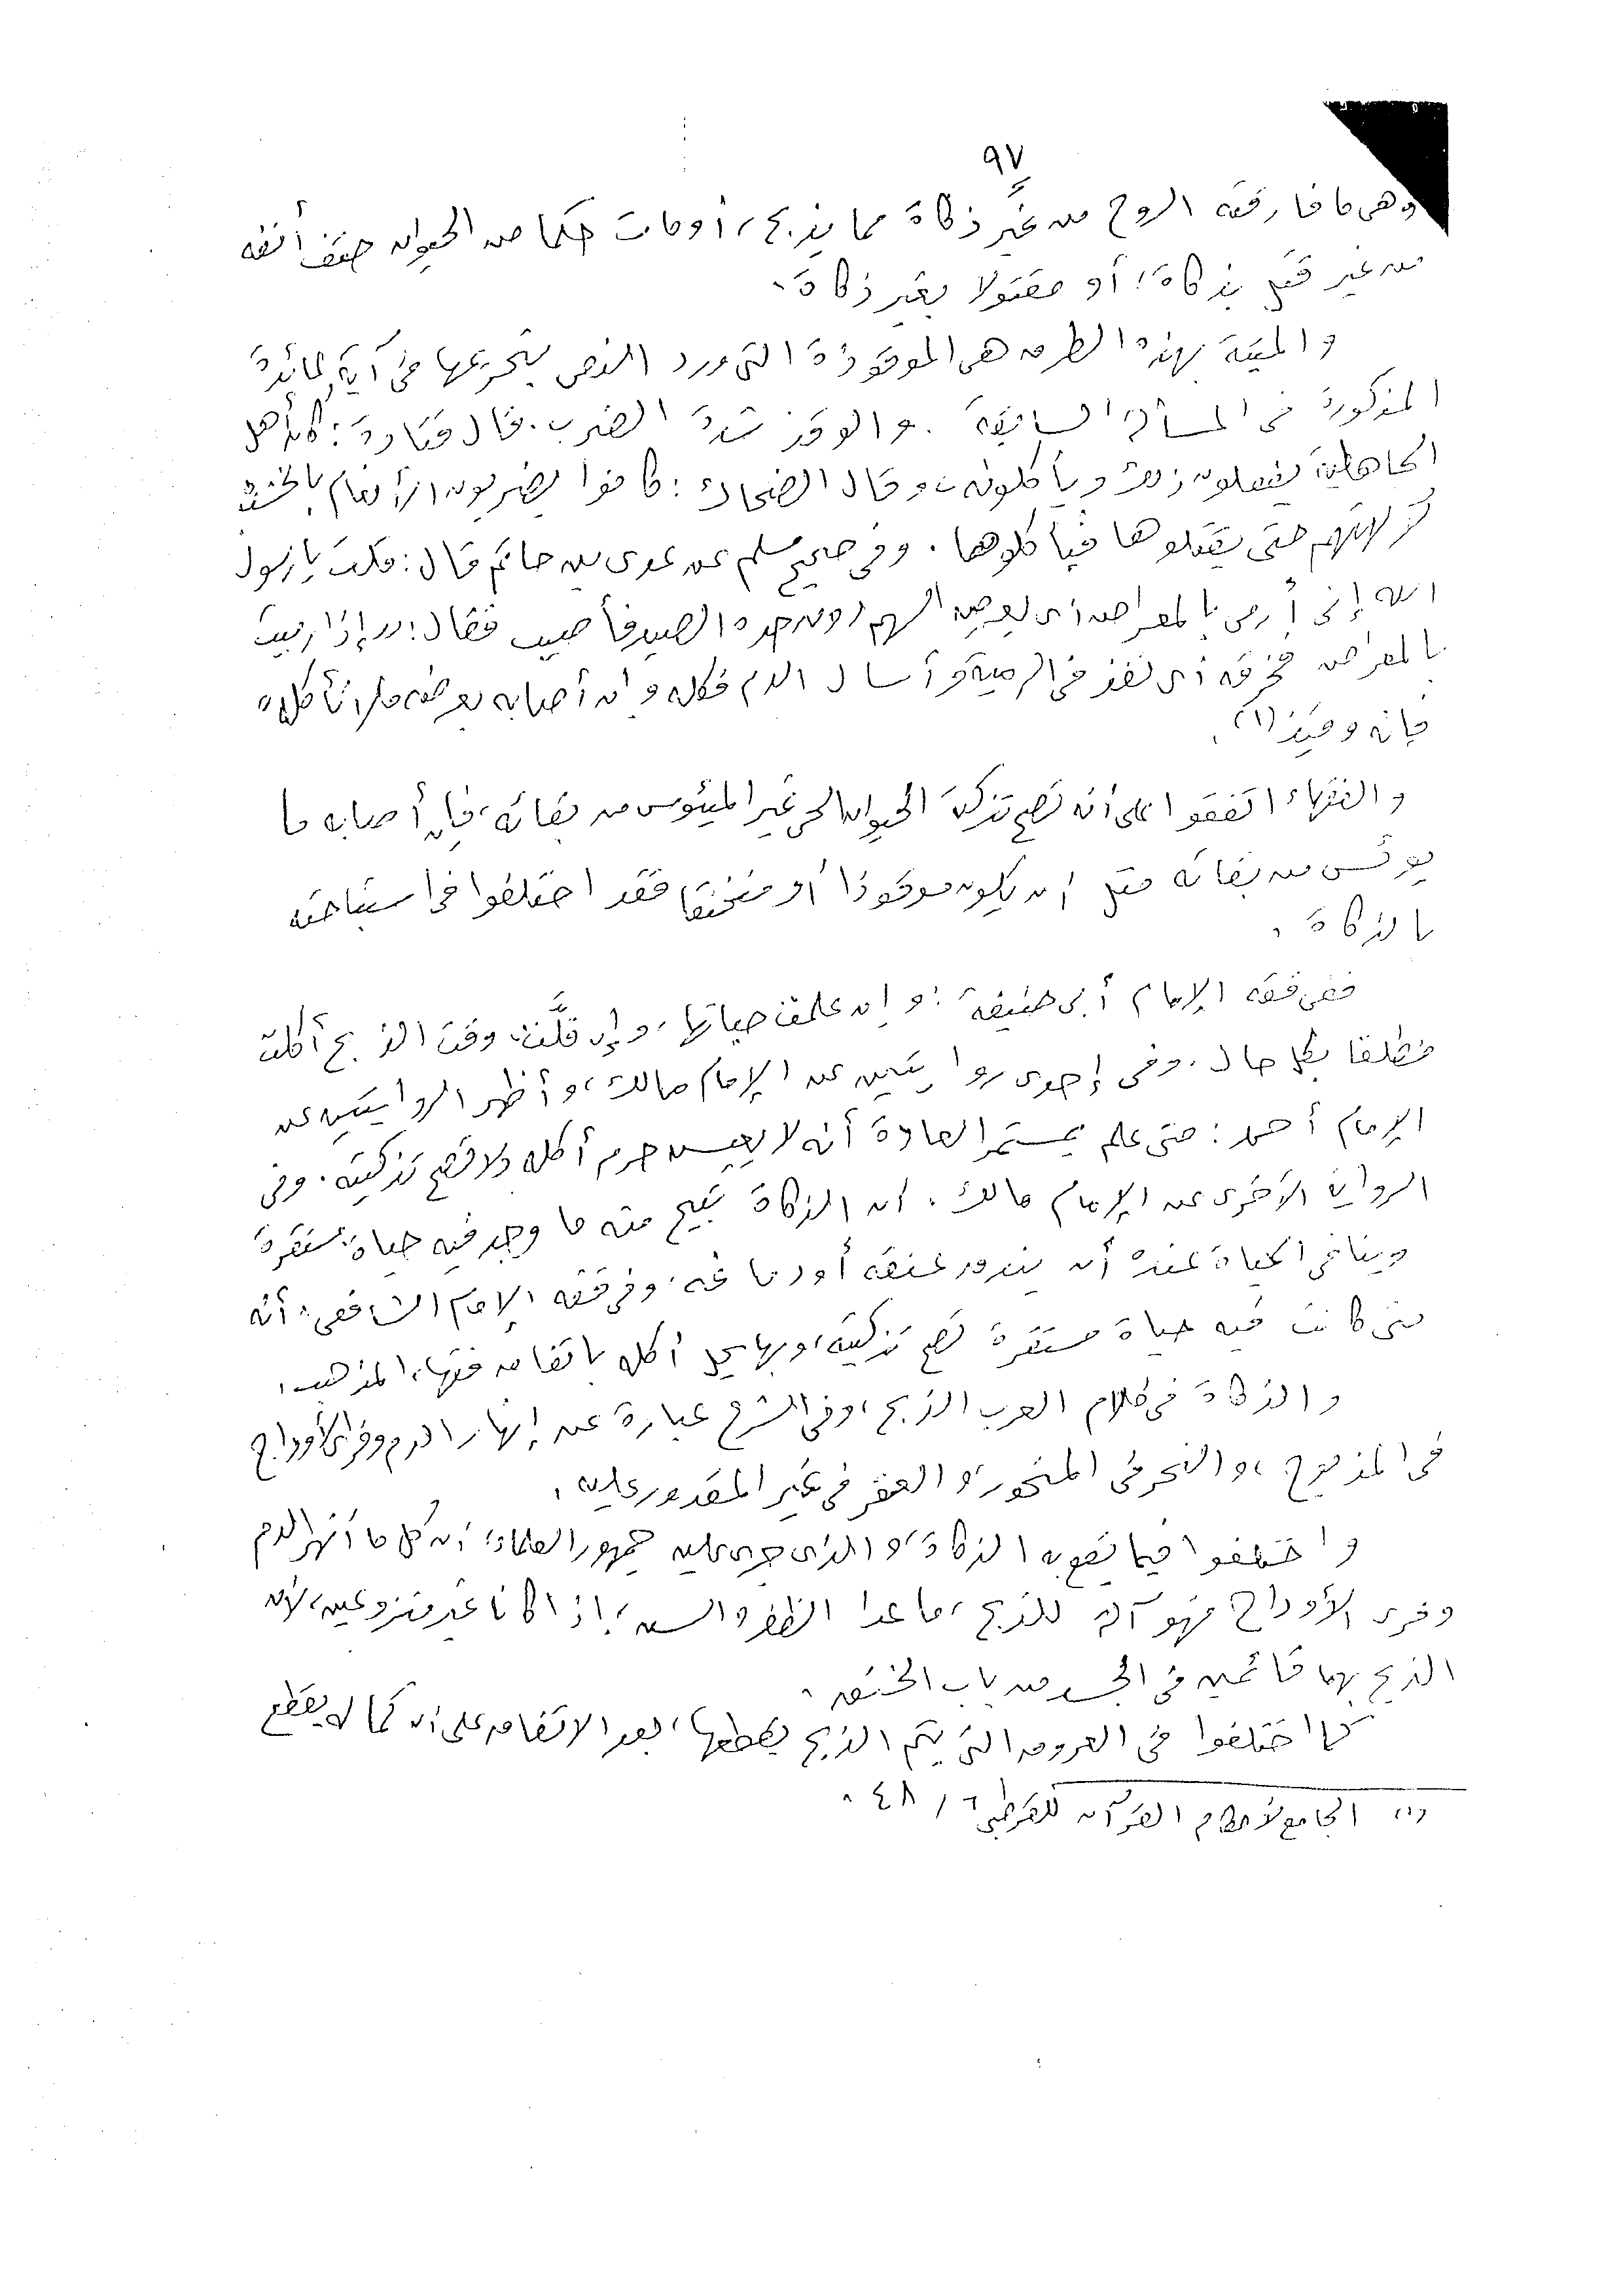 ٩٧
وهى ما فارقته الروح من غير ذكاة مما يذبح، أو مات حكما من الحيوان حتف أنفه
من غير قتل بذكاة، أو مقتولا بغير ذكاة.
والميتة بهذه الطرق هى الموقوذة التى ورد النص بتحريمها فى آية المائدة
المذكورة فى المسألة السابقة. والوقذ شدة الضرب. قال قتادة: كان أهل
الجاهلية يفعلون ذلك ويأكلونه، وقال الضحاك: كانوا يضربون الأنعام بالخشب
لآلهتهم حتى يقتلوها فيأكلوها. وفى صحيح مسلم عن عدى بن حاتم قال: قلت يا رسول
الله إنى أرمى بالمعراض أى بعرض السهم دون حده الصيد فأصيب فقال: «إذا رميت
بالمعراض فخرقه أى نفذ فى الرمية وأسال الدم فكله وإن أصابه بعرضه فلا تأكله»
فإنه وقيذ (١).
والفقهاء اتفقوا على أنه تصح تذكية الحيوان الحى غير الميئوس من بقائه، فإن أصابه ما
يوئس من بقائه مثل أن يكون موقوذا أو منخنقا فقد اختلفوا فى استباحته
بالذكاة.
ففى فقه الإمام أبى حنيفة: وإن علمت حياتها، وإن قلَّت، وقت الذبح أكلت
مطلقا بكل حال. وفى إحدى روايتين عن الإمام مالك، وأظهر الروايتين عن
الإمام أحمد: متى علم بمستمر العادة أنه لا يعيش حرم أكله ولا تصح تذكيته. وفى
الرواية الأخرى عن الإمام مالك: ان الذكاة تبيح منه ما وجد فيه حياة مستقرة
وينافى الحياة عنده أن يندق عنقه أو دماغه. وفى فقه الإمام الشافعى: أنه
متى كانت فيه حياة مستقرة تصح تذكيته، وبها يحل أكله باتفاق فقهاء المذهب.
والذكاة فى كلام العرب الذبح، وفى الشرع عبارة عن إنهار الدم وفرى الأوداج
فى المذبوح، والنحر فى المنحور، والعقر فى غير المقدور عليه.
واختلفوا فيما تقع به الذكاة، والذى جرى عليه جمهور العلماء: أن كل ما أنهر الدم
وفرى الأوداج فهو آلة للذبح، ما عدا الظفر والسن، إذا كانا غير منزوعين، لأن
الذبح بهما قائمين فى الجسد من باب الخنق.
كما اختلفوا فى العروق التى يتم الذبح بقطعها، بعد الاتفاق على أن كماله يقطع
(١) الجامع لأحكام القرآن للقرطبى ٦ / ٤٨.